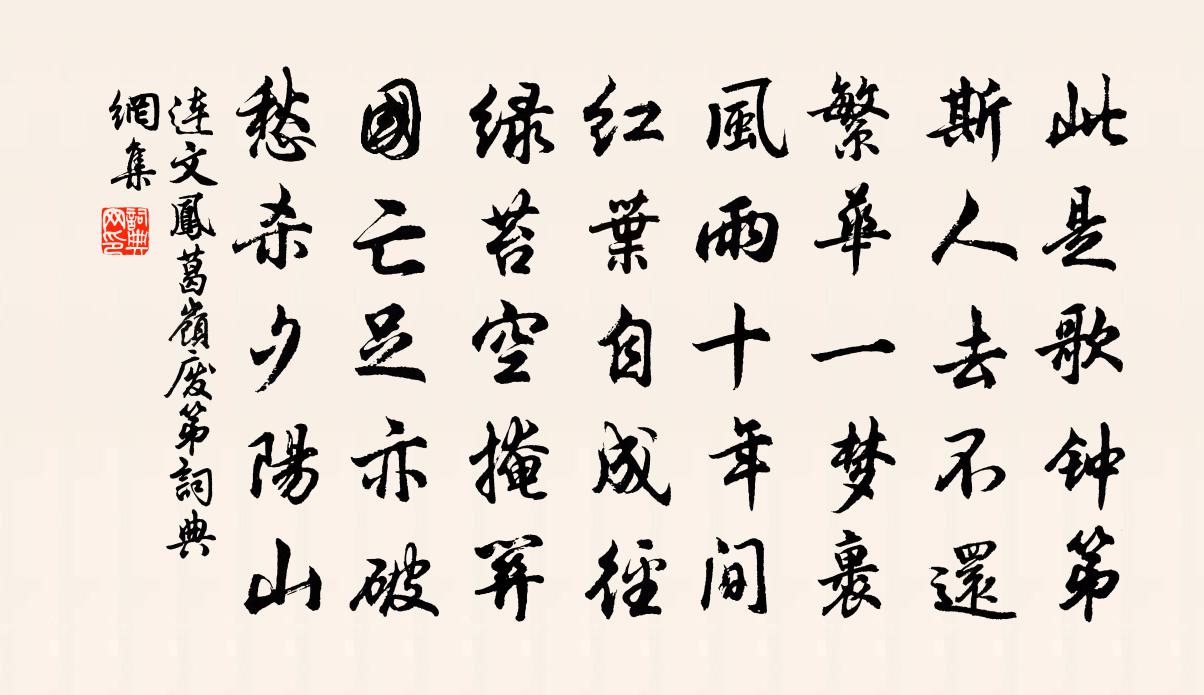 此是歌钟第
斯人去不還
繁華一梦裏
風雨十年间
红葉自成徑
绿苔空掩関
國亡足亦破
愁杀夕陽山
连文鳳葛嶺废第詞典
網集
詞典
网印